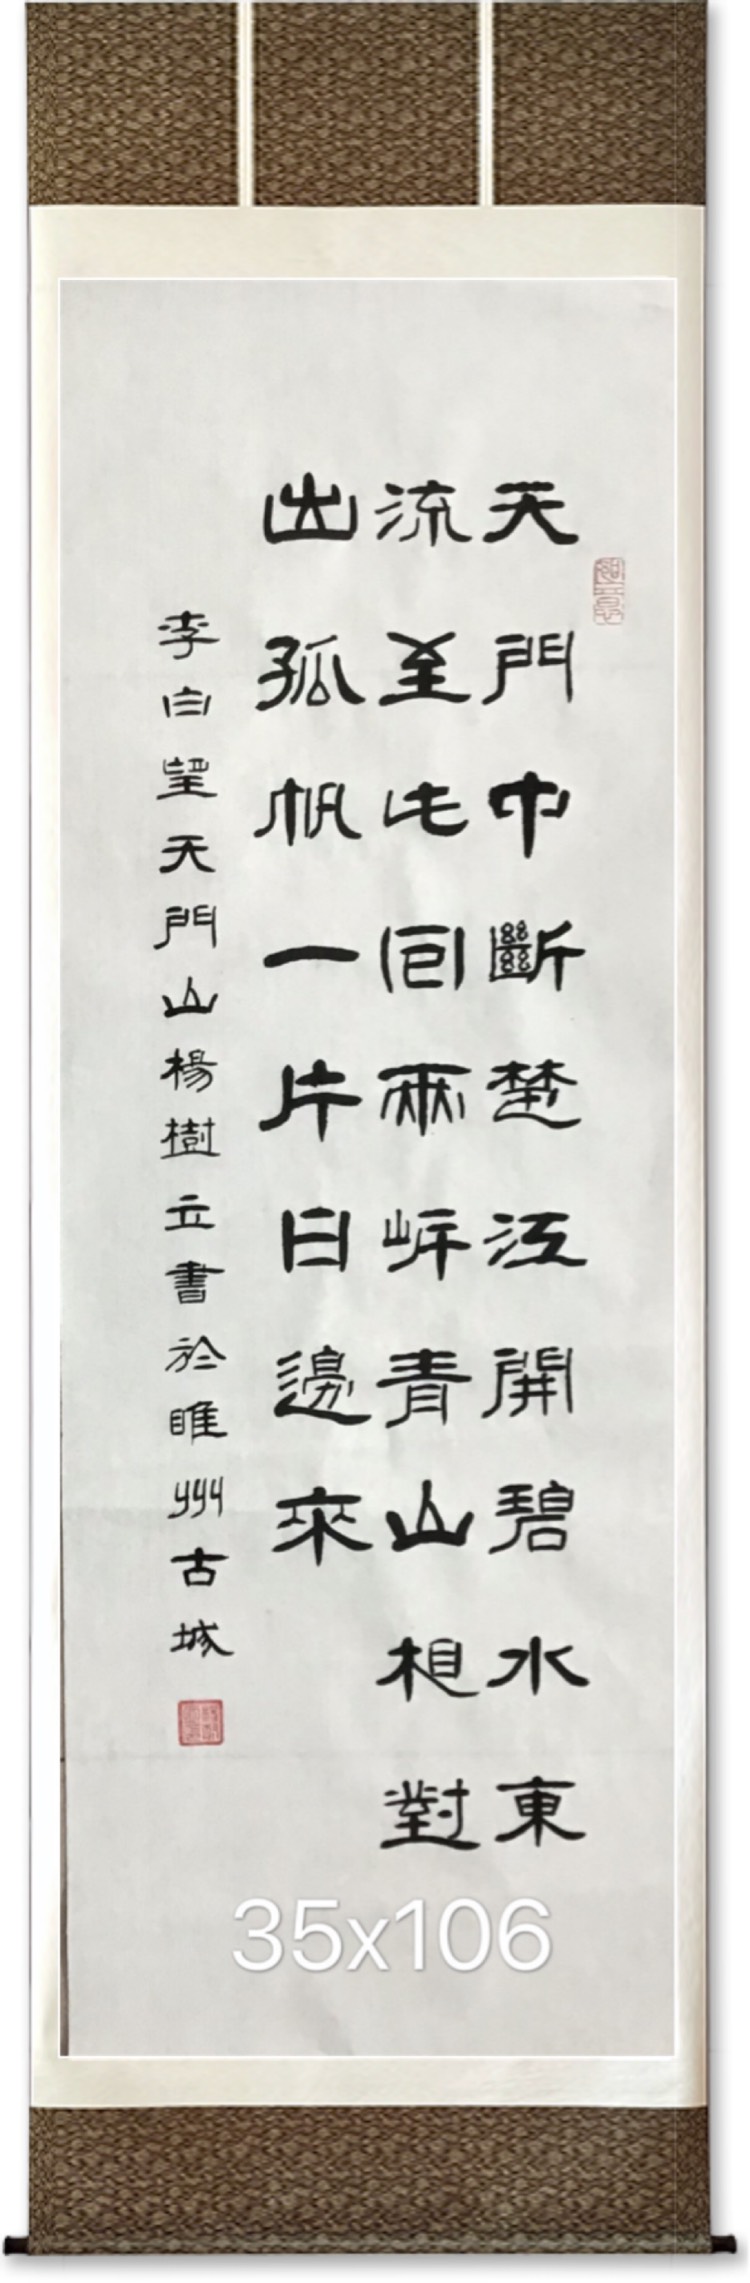 天門中斷楚江開碧水東
流至此回兩岸青山相對
出孤帆一片日邊來
李白望天門山楊樹立書於睢州古城
35x106